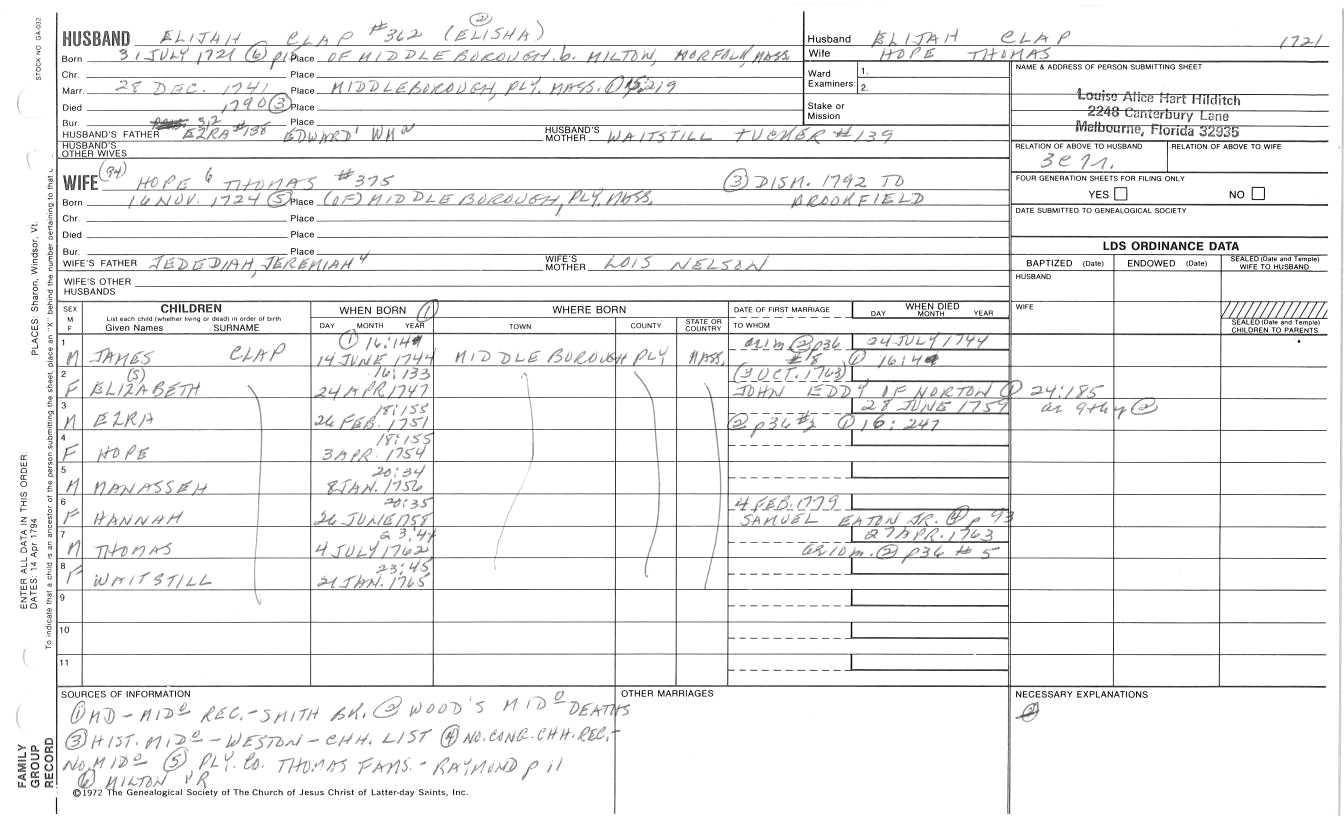 STOCK NO. GA-032
HUSBAND ELIJAH CLAP #362 (ELISHA) ②
Husband ELIJAH CLAP 1721
Wife HOPE THOMAS
Born 31 JULY 1721 ⑥ Place OF MIDDLEBOROUGH. b. MILTON, NORFOLK, MASS.
Chr. Place
Marr. 28 DEC. 1741 Place MIDDLEBOROUGH, PLY. MASS. ① 15:219
Died 1790 ③ Place
Bur. Place
Ward Examiners: 1.
2.
Stake or Mission
NAME & ADDRESS OF PERSON SUBMITTING SHEET
Louise Alice Hart Hilditch
2248 Canterbury Lane
Melbourne, Florida 32935
HUSBAND'S FATHER EZRA #138 EDWARD WM
HUSBAND'S MOTHER WAITSTILL TUCKER #139
HUSBAND'S OTHER WIVES
RELATION OF ABOVE TO HUSBAND
RELATION OF ABOVE TO WIFE
WIFE (94) HOPE 6 THOMAS #375
③ DISM. 1792 TO
BROOKFIELD
Born 16 NOV. 1724 ⑤ Place (OF) MIDDLEBOROUGH, PLY. MASS.
Chr. Place
Died Place
Bur. Place
FOUR GENERATION SHEETS FOR FILING ONLY
YES NO
DATE SUBMITTED TO GENEALOGICAL SOCIETY
WIFE'S FATHER JEDEDIAH, JEREMIAH 4
WIFE'S MOTHER LOIS NELSON
WIFE'S OTHER HUSBANDS
LDS ORDINANCE DATA
BAPTIZED (Date) ENDOWED (Date) SEALED (Date and Temple) WIFE TO HUSBAND
HUSBAND
WIFE
SEALED (Date and Temple) CHILDREN TO PARENTS
SEX M F
CHILDREN
List each child (whether living or dead) in order of birth
Given Names SURNAME
WHEN BORN ①
DAY MONTH YEAR
WHERE BORN
TOWN COUNTY STATE OR COUNTRY
DATE OF FIRST MARRIAGE
TO WHOM
WHEN DIED
DAY MONTH YEAR
1 ① 16:14 ② p36 24 JULY 1744
M JAMES CLAP 14 JUNE 1744 MIDDLEBOROUGH PLY MASS. #18 ①
2 (S) 16:133 (3 OCT. 1763)
F ELIZABETH 24 APR 1747 JOHN EDDY OF NORTON ① 24:185
3 18:155 28 JUNE 1759
M EZRA 26 FEB. 1751 ② p36 ① 16:247
4 18:155
F HOPE 3 APR. 1754
5 20:34
M MANASSEH 8 JAN. 1756
6 20:35 4 FEB. 1779
F HANNAH 26 JUNE 1758 SAMUEL EATON JR. ④ p 93
7 27 APR. 1763
M THOMAS 4 JULY 1762 ② p36 #5
8 23:45
F WAITSTILL 21 JAN. 1765
9
10
11
SOURCES OF INFORMATION
① MD – MIDO REC. – SMITH BK. ② WOOD'S MIDO DEATHS
③ HIST. MIDO – WESTON – CHH. LIST ④ NO. CONG. CHH. REC. –
NO. MIDO ⑤ PLY. CO. THOMAS FAMS. – RAYMOND p 11
⑥ MILTON VR
OTHER MARRIAGES
NECESSARY EXPLANATIONS
©1972 The Genealogical Society of The Church of Jesus Christ of Latter-day Saints, Inc.
FAMILY GROUP RECORD
ENTER ALL DATA IN THIS ORDER:
DATES: 14 Apr 1794
PLACES: Sharon, Windsor, Vt.
To indicate that a child is an ancestor of the person submitting the sheet, place an "X" behind the number pertaining to that